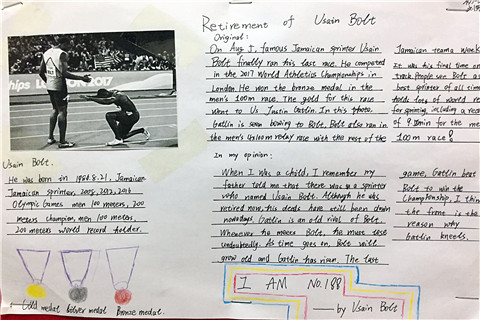 Retirement of Usain Bolt
Original:
On Aug 5, famous Jamaican sprinter Usain
Bolt finally ran his last race. He competed
in the 2017 World Athletics Championships in
London. He won the bronze medal in the
men's 100m race. The gold for this race
went to Us Justin Gatlin. In this photo.
Gatlin is seen bowing to Bolt. Bolt also ran in
the men's 4x100m relay race with the rest of the
Jamaican team
It was his final time on
track. People see Bolt as
best sprinter of all time
holds lots of world re
for sprinting, including a reco
of 9.58 for the me
100m race!
In my opinion:
When I was a child, I remember my
father told me that there was a sprinter
who named Usain Bolt. Although he was
retired now, his deeds have still been
nowadays. Gatlin is an old rival of Bolt.
Whenever he meets Bolt, he must lost
undoubtedly. As time goes on, Bolt will
grow old and Gatlin has risen. The last
game, Gatlin beat
Bolt to win the
Championship. I think
the frame is the
reason why
Gatlin kneels.
hips LONDON 2017
Usain Bolt.
He was born in 8.21, Jamaican
Jamaican sprinter, 2008, 2012, 2016
Olympic Games men 100 meters, 200
meters champion, men 100 meters,
200 meters world record holder.
Gold medal Silver medal Bronze medal.
I AM No.188
— by Usain Bolt